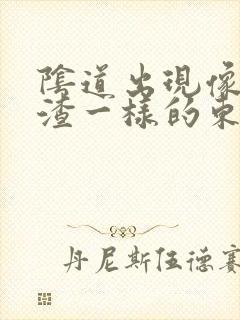 陰道出現像
渣一樣的東
丹尼斯伍德賽